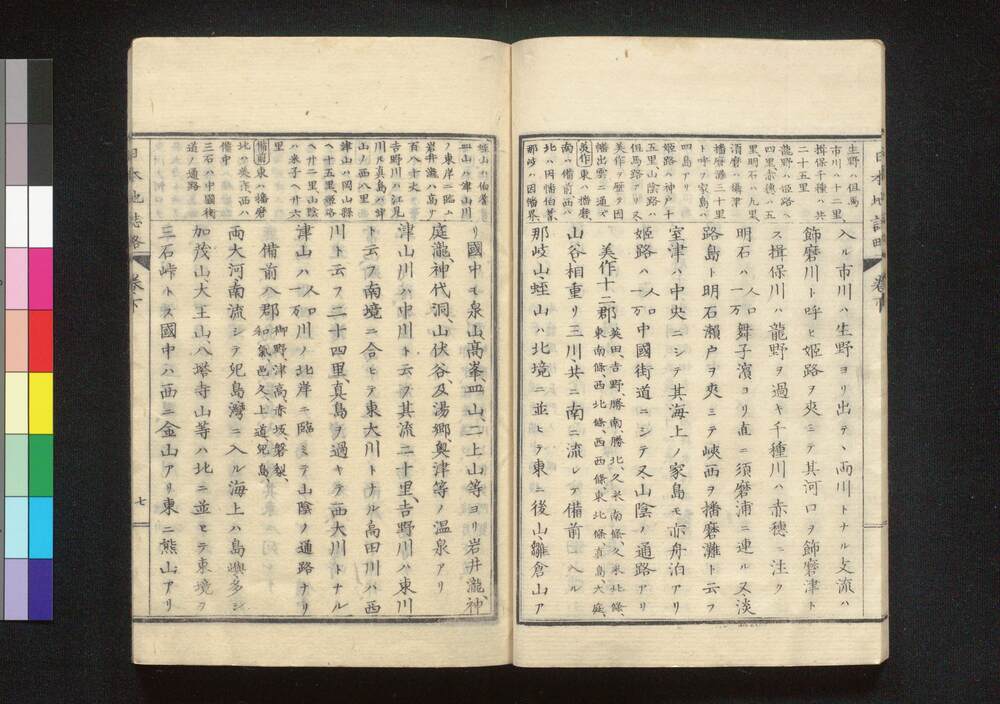 日本地誌略 卷下
生野ハ但馬
市川ハ十二里、
揖保千種ハ共
二十五里
龍野ハ姫路ヘ
四里赤穗ハ五
里、明石ハ九里、
須磨ハ攝津
播磨灘三十里
ト呼フ家島ハ
四島アリ
姫路ハ神戸十
五里山陰路ハ
但馬路アリ又
美作ヲ歷テ因
幡出雲ニ通ズ
美作東ハ播磨、
南ハ備前西ハ
北ハ因幡伯耆
那岐ハ因幡界、
入ル市川ハ生野ヨリ出テ、両川トナル支流ハ
飾磨川ト呼ヒ姫路ヲ夾ミテ其河口ヲ飾磨津ト
ス揖保川ハ龍野ヲ過キ千種川ハ赤穗ニ注ク
明石ハ人口一万舞子濱ヨリ直ニ須磨浦ニ連ル又淡
路島ト明石瀨戸ヲ夾ミテ峽西ヲ播磨灘ト云フ
室津ハ中央ニシテ其海上ノ家島モ亦舟泊アリ
姫路ハ人口一万中國街道ニシテ又山陰ノ通路アリ
美作十二郡英田、吉野、勝南、勝北、久米南條、久米北條、東南條、西北條、西西條、東北條、真島、大庭、
山谷相重リ三川共ニ南ニ流レテ備前ヘ入ル
那岐山、蛭山ハ北境ニ並ヒテ東ニ後山、雛倉山ア
蛭山ハ伯耆
皿山ハ津山川
ノ東岸ニ臨ム
岩井瀧ハ高サ
百八十丈
吉野川ハ江見
川ル真島ハ津
山ノ西八里
津山ハ岡山縣
ヘ十五里姫路
ヘ廿二里山陰
ハ米子ヘ廿六
里
備前東ハ播磨
北ハ美作、西ハ
備中
三石ハ中國街
道ノ通路
リ國中モ泉山、高峯、皿山、二上山等ヨリ岩井瀧、神
庭瀧、神代洞、山伏谷及湯郷、奥津等ノ温泉アリ
津山川ハ中川ト云フ其流二十里、吉野川ハ東川
ト云フ南境ニ合ヒテ東大川トナル高田川ハ西
川ト云フ二十四里、真島ヲ過キテ西大川トナル
津山ハ人口一万川ノ北岸ニ臨ミテ山陰ノ通路ナリ
備前八郡御野、津高、赤坂、磐梨、和氣、邑久、上道、兒島、
両大河南流シテ兒島灣ニ入ル海上ハ島嶼多シ
加茂山、大王山、八塔寺山等ハ北ニ並ヒテ東境ヲ
三石峠トス國中ハ西ニ金山アリ東ニ熊山アリ
日本地誌略 卷下
七